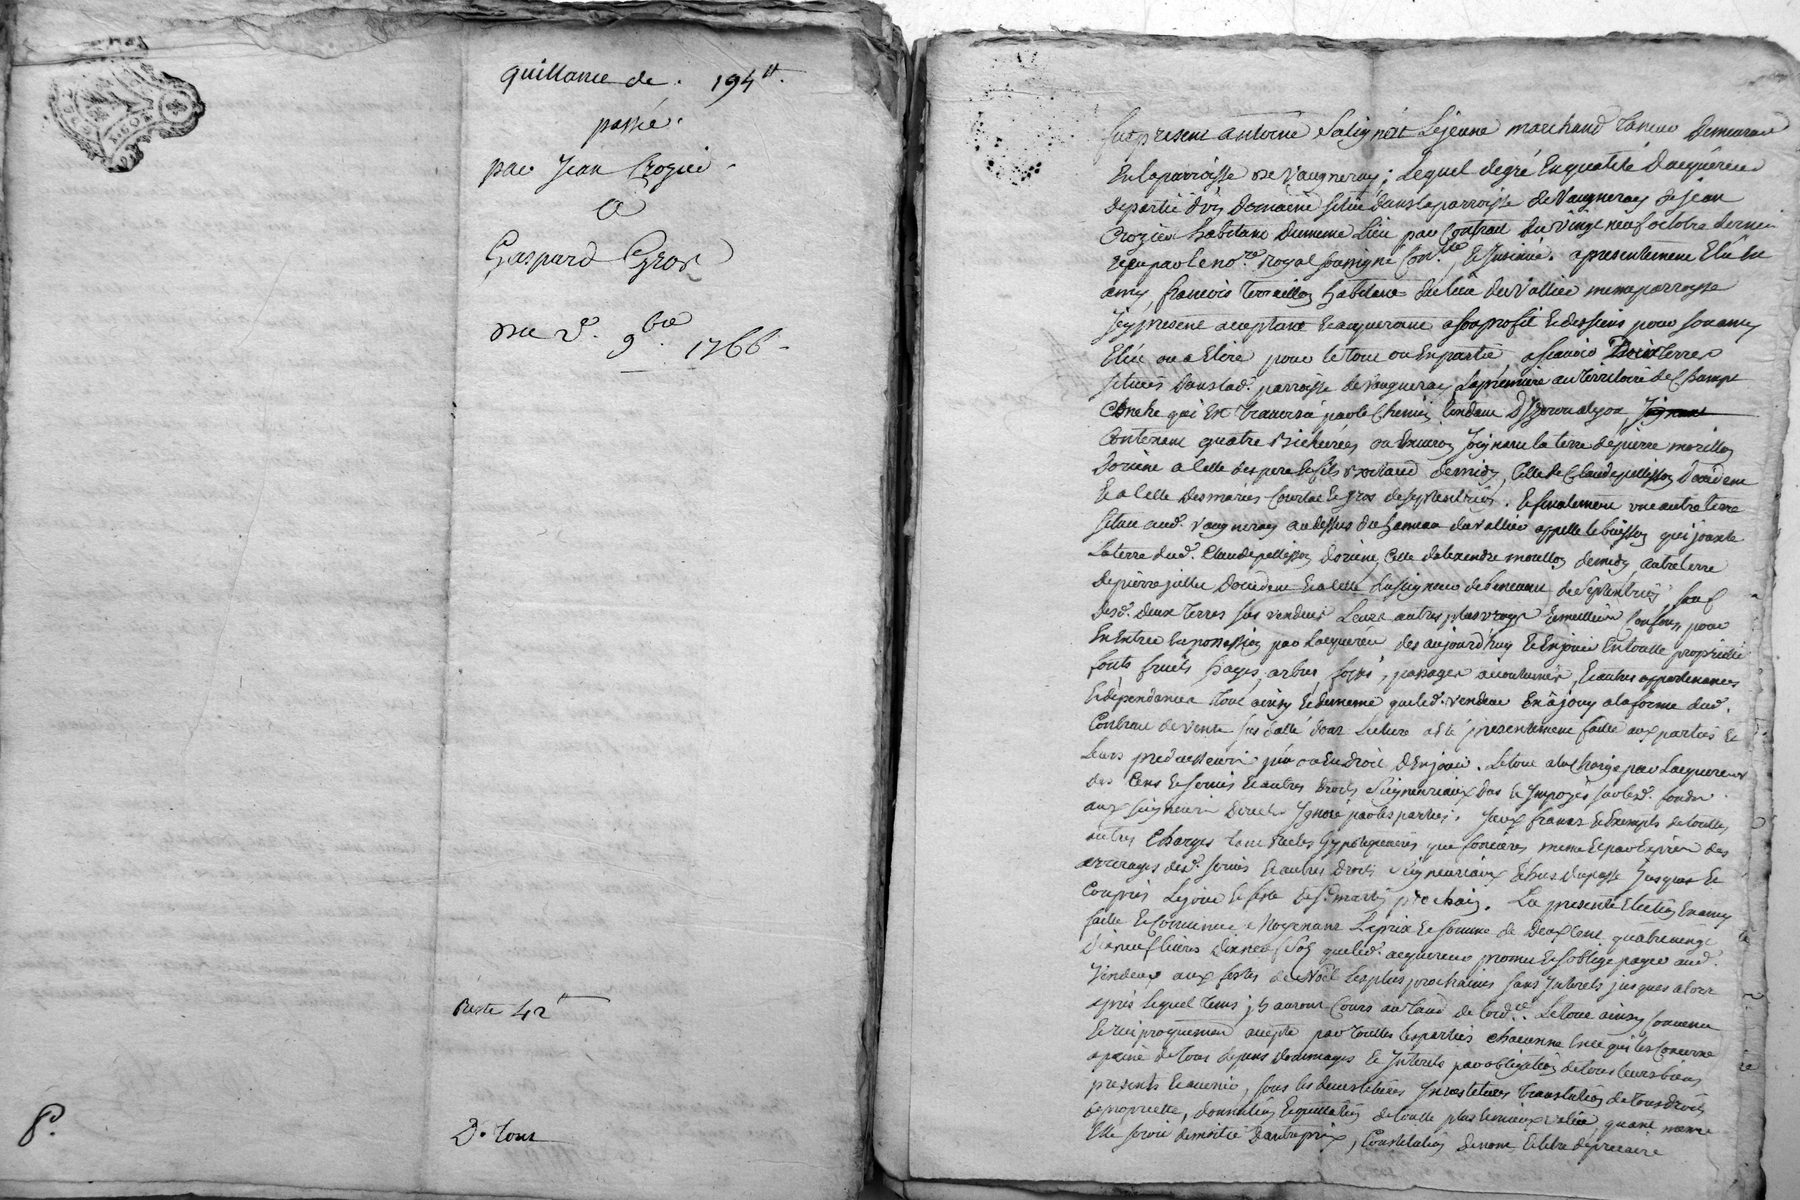 quittance de 194ᵗᵗ
passée
par Jean Crozier
a
Gaspard Gros
du 2ᵉ. 9ᵇʳᵉ. 1766
Reste 42ᵗᵗ
D. tour
8ᵒ.
fut present antoine Salignat Lejeune marchand taneur demeurant
En la parroisse de Vaugneray ; Lequel degré En qualité dacquéreur
de partie d'un Domaine situé dans la parroisse de Vaugneray de jean
Crozier habitant du meme Lieu par Contrat du vingt neuf octobre dernier
Reçu par le noʳᵉ. royal soussigné a presentement Elu En
amy, francois habitant du lieu du Vallier meme parroisse
Jcy present acceptant Et acquerant a son profit Et des siens pour son amy
Elu ou a Elire pour le tout ou En partie terres
situés dans lad. parroisse de Vaugneray La premiere au territoire de Champt
qui Est traversé par le Chemin tendant a Lyon
Contenant quatre Bicherées ou Environ Joignant la terre de pierre morillon
dorient a Celle des pere Et fils de midy, Celle de Claude pellisson doccident
Et a Celle des mariés Et gros de septentrion. Et finalement une autre terre
situé aud. Vaugneray au dessus du hameau du Vallier appellé le buisson qui jouxte
La terre dud. Claude pellisson dorient, Celle dalexandre morillon de midy, autre terre
de pierre jullien doccident Et a Celle du seigneur de de septentrion sauf
desd. deux terres sus vendues Leurs autres plus vrays Et meilleurs Confins, pour
En Entrer En possession par Lacquéreur des aujourd'huy Et En jouir En toutte proprieté
fonts fruits hayes, arbres, fossés, passages accoutumés, Et autres appartenances
Et dependances tout ainsy Et de meme que led. vendeur En a jouy a la forme dud.
Contrat de vente sus datté dont Lecture a été presentement faitte aux parties Et
Leurs predecesseurs ou En droit d'En jouir. Le tout a la charge par Lacquereur
des Cens Et servis Et autres droits Seigneuriaux dus Et Imposés sur lesd. fonds
aux seigneurs Directs Ignoré par les parties. Jceux francs Et Exempts de touttes
autres Charges tant dettes hypotequaires que foncieres meme Et par Exprès des
arrerages desd. servis Et autres droits Seigneuriaux Echus du passé Jusques Et
Compris Le jour Et feste de St. martin prochain. La presente Election En amy
faitte Et Convenue Moyennant Le prix Et somme de Deux Cent quatre vingt
Dixneuf Livres dixneuf Sols que led. acquereur promet Et soblige payer aud.
Vendeur aux festes de Noël Les plus prochaines sans Interets jusques alors
après Lequel tems ; Ils auront Cours au taux de lordᶜᵉ. Le tout ainsy Convenu
Et reciproquement accepté par touttes Les parties chacunne En ce qui les Concerne
a peine de tous depens dommages Et Interets par obligation de tous leurs biens
presents Et avenir, sous les deues Investitures translation de tous droits
de proprieté, donnation Et quittation de toutte plus value, quant meme
Elle seroit de moitié dautre prix, Constitution de nom Et titre de precaire